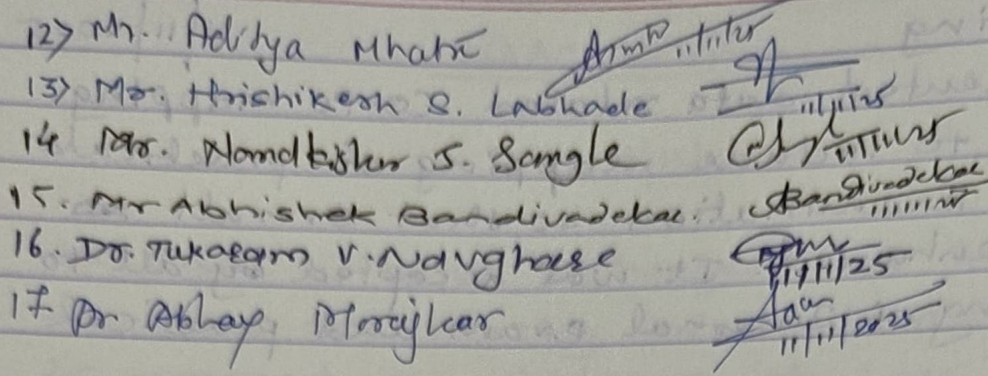 12) Mr. Aditya Mhatre 11/11/25
13) Mr. Hrishikesh S. Labhade 11/11/25
14 Mr. Nandkishor S. Sangle 11/11/25
15. Mr Abhishek Bandivadekar. SBandivadekar 11/11/25
16. Dr. Tukaram V. Navghare 11/11/25
17 Dr Abhay Morajkar 11/11/2025